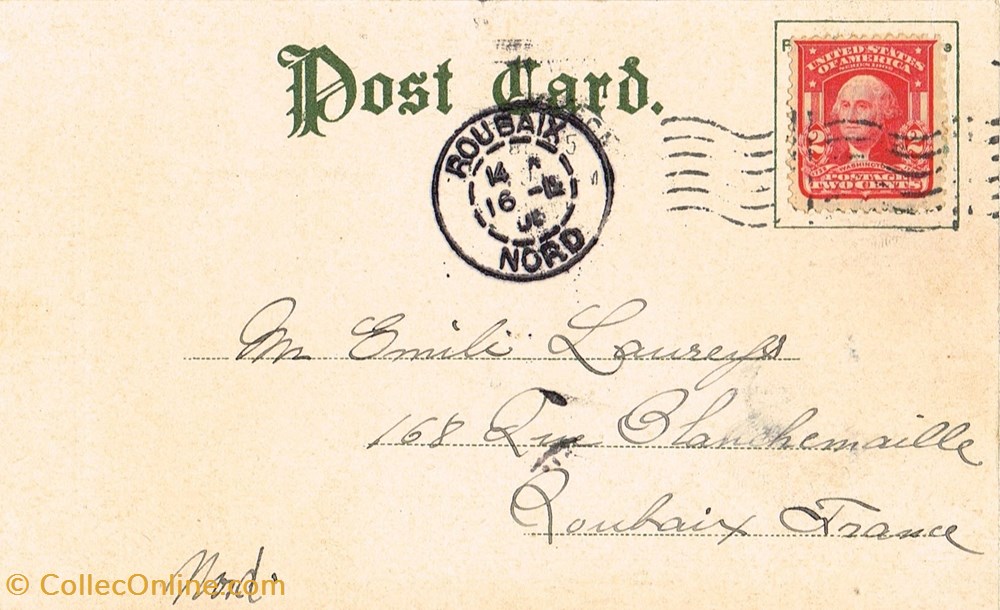 Post Card.
UNITED STATES
OF AMERICA
SERIES 1902
2 2
WASHINGTON
POSTAGE
TWO CENTS
ROUBAIX
14
16 - 12
NORD
M Emile Laureys
168 Rue Blanchemaille
Roubaix France
Nord.
© CollecOnline.com